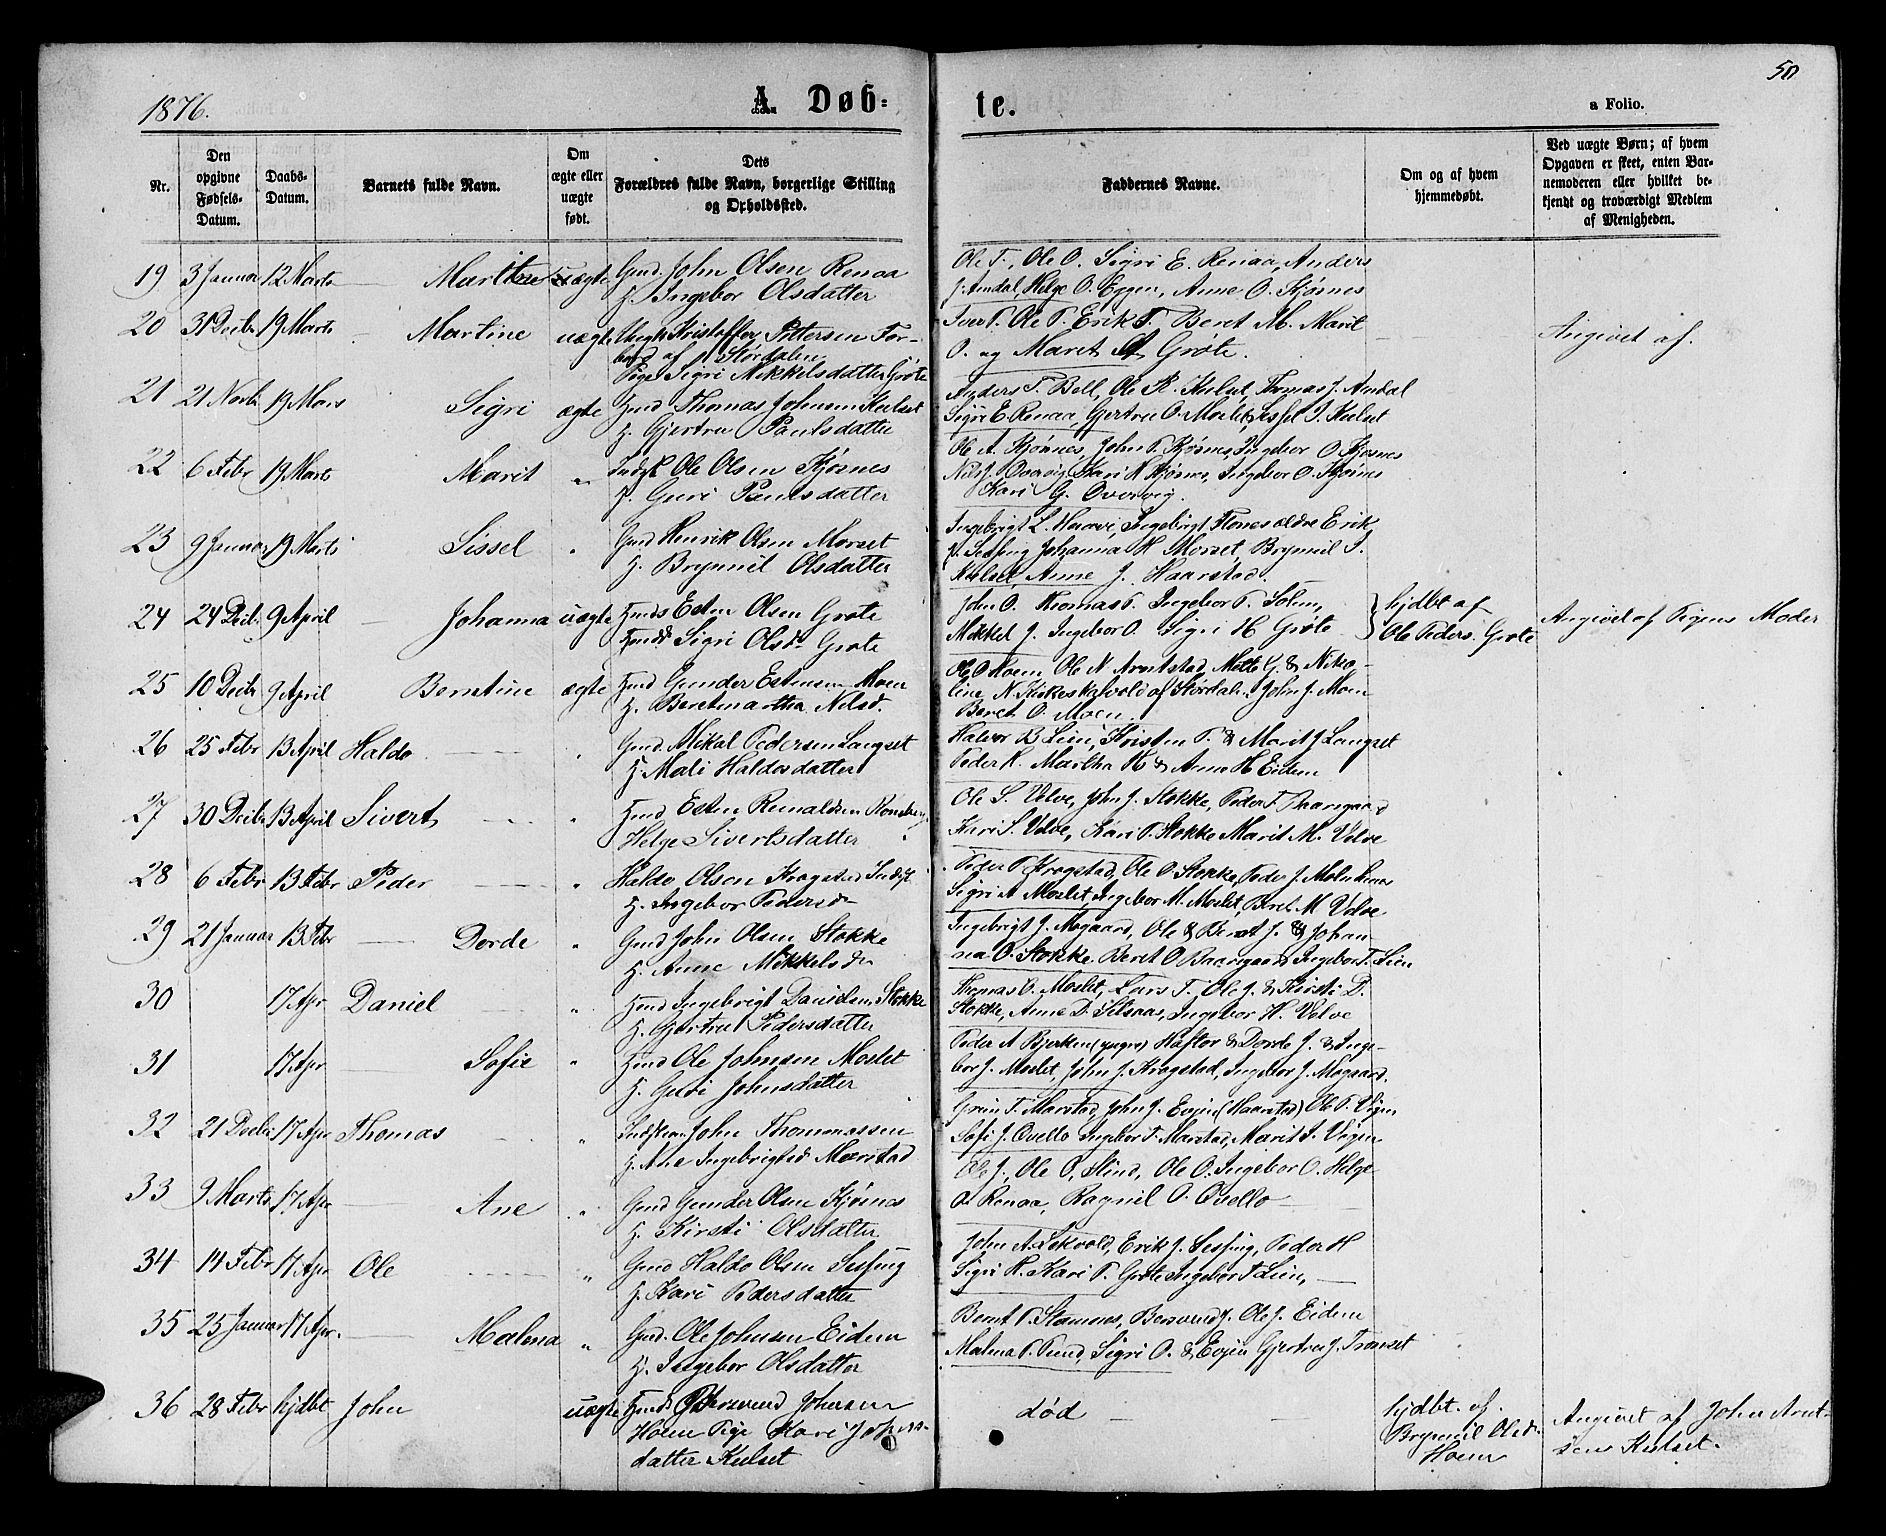 1876.
A. Døb=
te.
50
a Folio.
Nr.
Den opgivne Fødsels-Datum.
Daabs-Datum.
Barnets fulde Navn.
Om ægte eller uægte født.
Dets Forældres fulde Navn, borgerlige Stilling og Opholdssted.
Faddernes Navne.
Om og af hvem hjemmedøbt.
Ved uægte Børn; af hvem Opgaven er skeet, enten Barnemoderen eller hvilket bekjendt og troværdigt Medlem af Menigheden.
19 3 Januar 12 Marts Gmd. John Olsen Renaa
H. Ingebor Olsdatter
Ole T., Ole O. Sigri E. Renaa, Anders
J. Amdal, Helge O. Eggen, Anne O. Kjøsnes
20 31 Decbr 19 Marts Martine uægte Ungk Kristoffer Pettersen For-
bord af Størdalen
Pige Sigri Mikkelsdatter Grøte
Iver P. Ole P. Erik T. Beret M. Marit
O. og Maret Grøte.
Angivet af.
21 21 Novbr 19 Mars Sigri ægte Gmd. Thomas Johnsen Kulset
H. Gjertru Paulsdatter
Anders T. Bell, Ole K. Kulset, Thomas J. Amdal
Sigri E. Renaa, Gjertru O. Moslet, Sissel I. Kulset
22 6 Febr 19 Marts Marit " Indst Ole Olsen Kjøsnes
H. Guri Paulsdatter
Ole A. Kjøsnes, John P. Kjøsnes, Ingebor O. Kjøsnes
Nils J. Overvig, Kari H. Kjøsnes, Ingebor O. Kjøsnes
Kari G. Overvig.
23 9 Januar 19 Marts Sissel " Gmd Henrik Olsen Morset
H. Brynnil Olsdatter
Ingebrigt L. Haarve, Ingebrigt Flones ældre Erik
J. Sesseng Johanna H. Morset, Brynnil I.
Kulset, Anne J. Haarstad.
24 24 Decbr. 9 April Johanna uægte Esten Olsen Grøte
Sigri Olsd. Grøte
John O. Thomas P. Ingebor P. Solem,
Mikkel J. Ingebor O. Sigri H. Grøte
hjdbt af
Ole Peders. Grøte
Angivet af Pigens Moder
25 10 Decbr 9 April Berntine ægte Gmd Gunder Estensen Moen
H. Beretmartha Nilsd.
Ole O. Moen, Ole N. Arntstad Mette G. & Niko-
line N. Kirkeskafvold af Størdalen. John J. Moen
Beret O. Moen.
26 25 Febr 13 April Haldo " Gmd. Mikal Pedersen Langset
H. Mali Haldosdatter
Halvor B. Lien, Kristen P. & Marit J. Langset
Peder K. Martha H. & Anne H. Eidem
27 30 Decbr 13 April Sivert " Hmd Esten Reinaldsen
Helge Sivertsdatter
Ole S. Velve, John J. Stokke, Peder T. Baarsgaard
Kari S. Velve, Kari P. Stokke Marit M. Velve
28 6 Febr 13 Febr Peder " Haldo Olsen Kragstad Indst
H. Ingebor Pedersdr
Peder P. Kragstad, Ole O. Stokke, Peder J.
Sigri A. Moslet, Ingebor M. Moslet, Beret M. Velve
29 21 Januar 13 Febr Dorde " Gmd John Olsen Stokke
H. Anne Mikkelsdr
Ingebrigt J. Mogaard, Ole & Beret J. & Johan-
na O. Stokke. Beret O. Baarsgaard Ingebor T. Lien
30 17 Apr Daniel " Hmd Ingebrigt Danielsen Stokke
H. Gjertru Pedersdatter
Thomas O. Moslet, Lars T. Ole J. & Kirsti D.
Stokke, Anne D. Setsaas, Ingebor H. Velve
31 17 Apr Sofie " Hmd Ole Johnsen Moslet
H. Guri Johnsdatter
Peder A. Bjerken (yngre) Haftor & Dorde J. & Inge-
bor J. Moslet, John J. Kragstad, Ingebor J. Mogaard.
32 21 Decbr 17 Apr Thomas " John Thomassen
H. Ane Ingebrigtsd Marstad
Grim T. Marstad, John J. Evjen (Haarstad) Ole P. Vigen
Sofi J. Ovello Ingebor T. Marstad, Marit I. Vigen
33 9 Marts 17 Apr Ane " Gmd Gunder Olsen Kjøsnes
H. Kirsti Olsdatter
Ole J., Ole O. Stind, Ole O. Ingebor O. Helge
O. Renaa, Ragnil O. Ovello
34 14 Febr 17 Apr Ole " Gmd Haldo Olsen Sesseng
H. Kari Pedersdatter
John A. Lekvold, Erik J. Sesseng, Peder H
Sigri K. Kari P. Grøte Ingebor T. Lien,
35 25 Januar 17 Apr. Malena " Gmd. Ole Johnsen Eidem
H. Ingebor Olsdatter
Beret P. Stamnes, Bersvend J. Ole J. Eidem
Malena P. Sigri O. & Evjen Gjertru J. Tronset
36 28 Febr hjdbt John uægte Bersvend Johnsen
Hoem Pige Kari Johns-
datter Kulset
død
hjdbt. af.
Brynnil Olsd.
Hoem
Angivet af John Arnt-
sen Kulset.